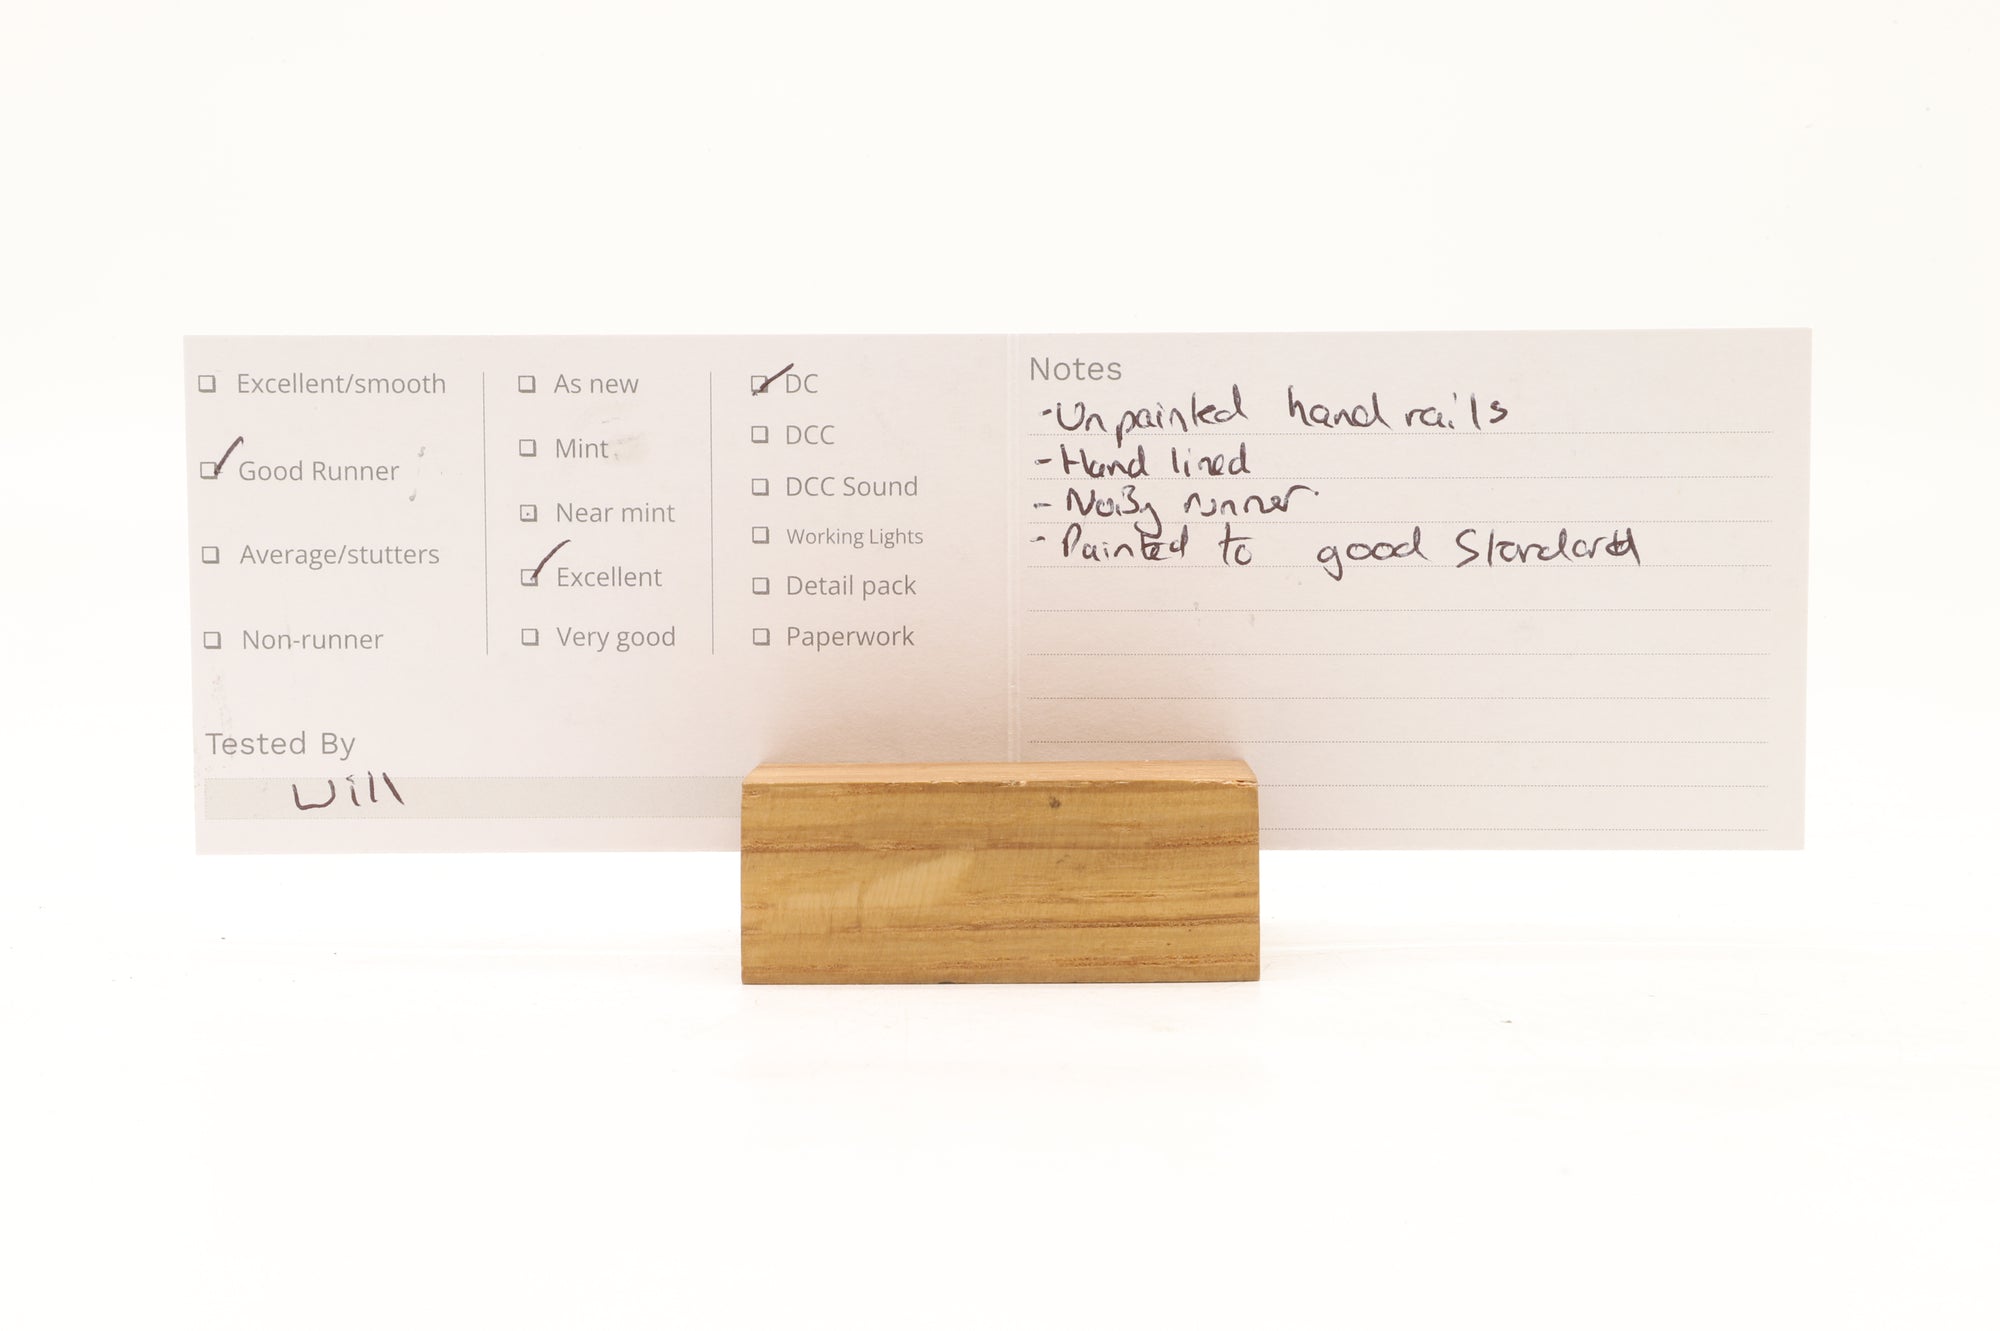 Excellent/smooth
Good Runner
Average/stutters
Non-runner
As new
Mint
Near mint
Excellent
Very good
DC
DCC
DCC Sound
Working Lights
Detail pack
Paperwork
Tested By
Will
Notes
-Unpainted hand rails
-Hand lined
- Noisy runner.
- Painted to good Standard